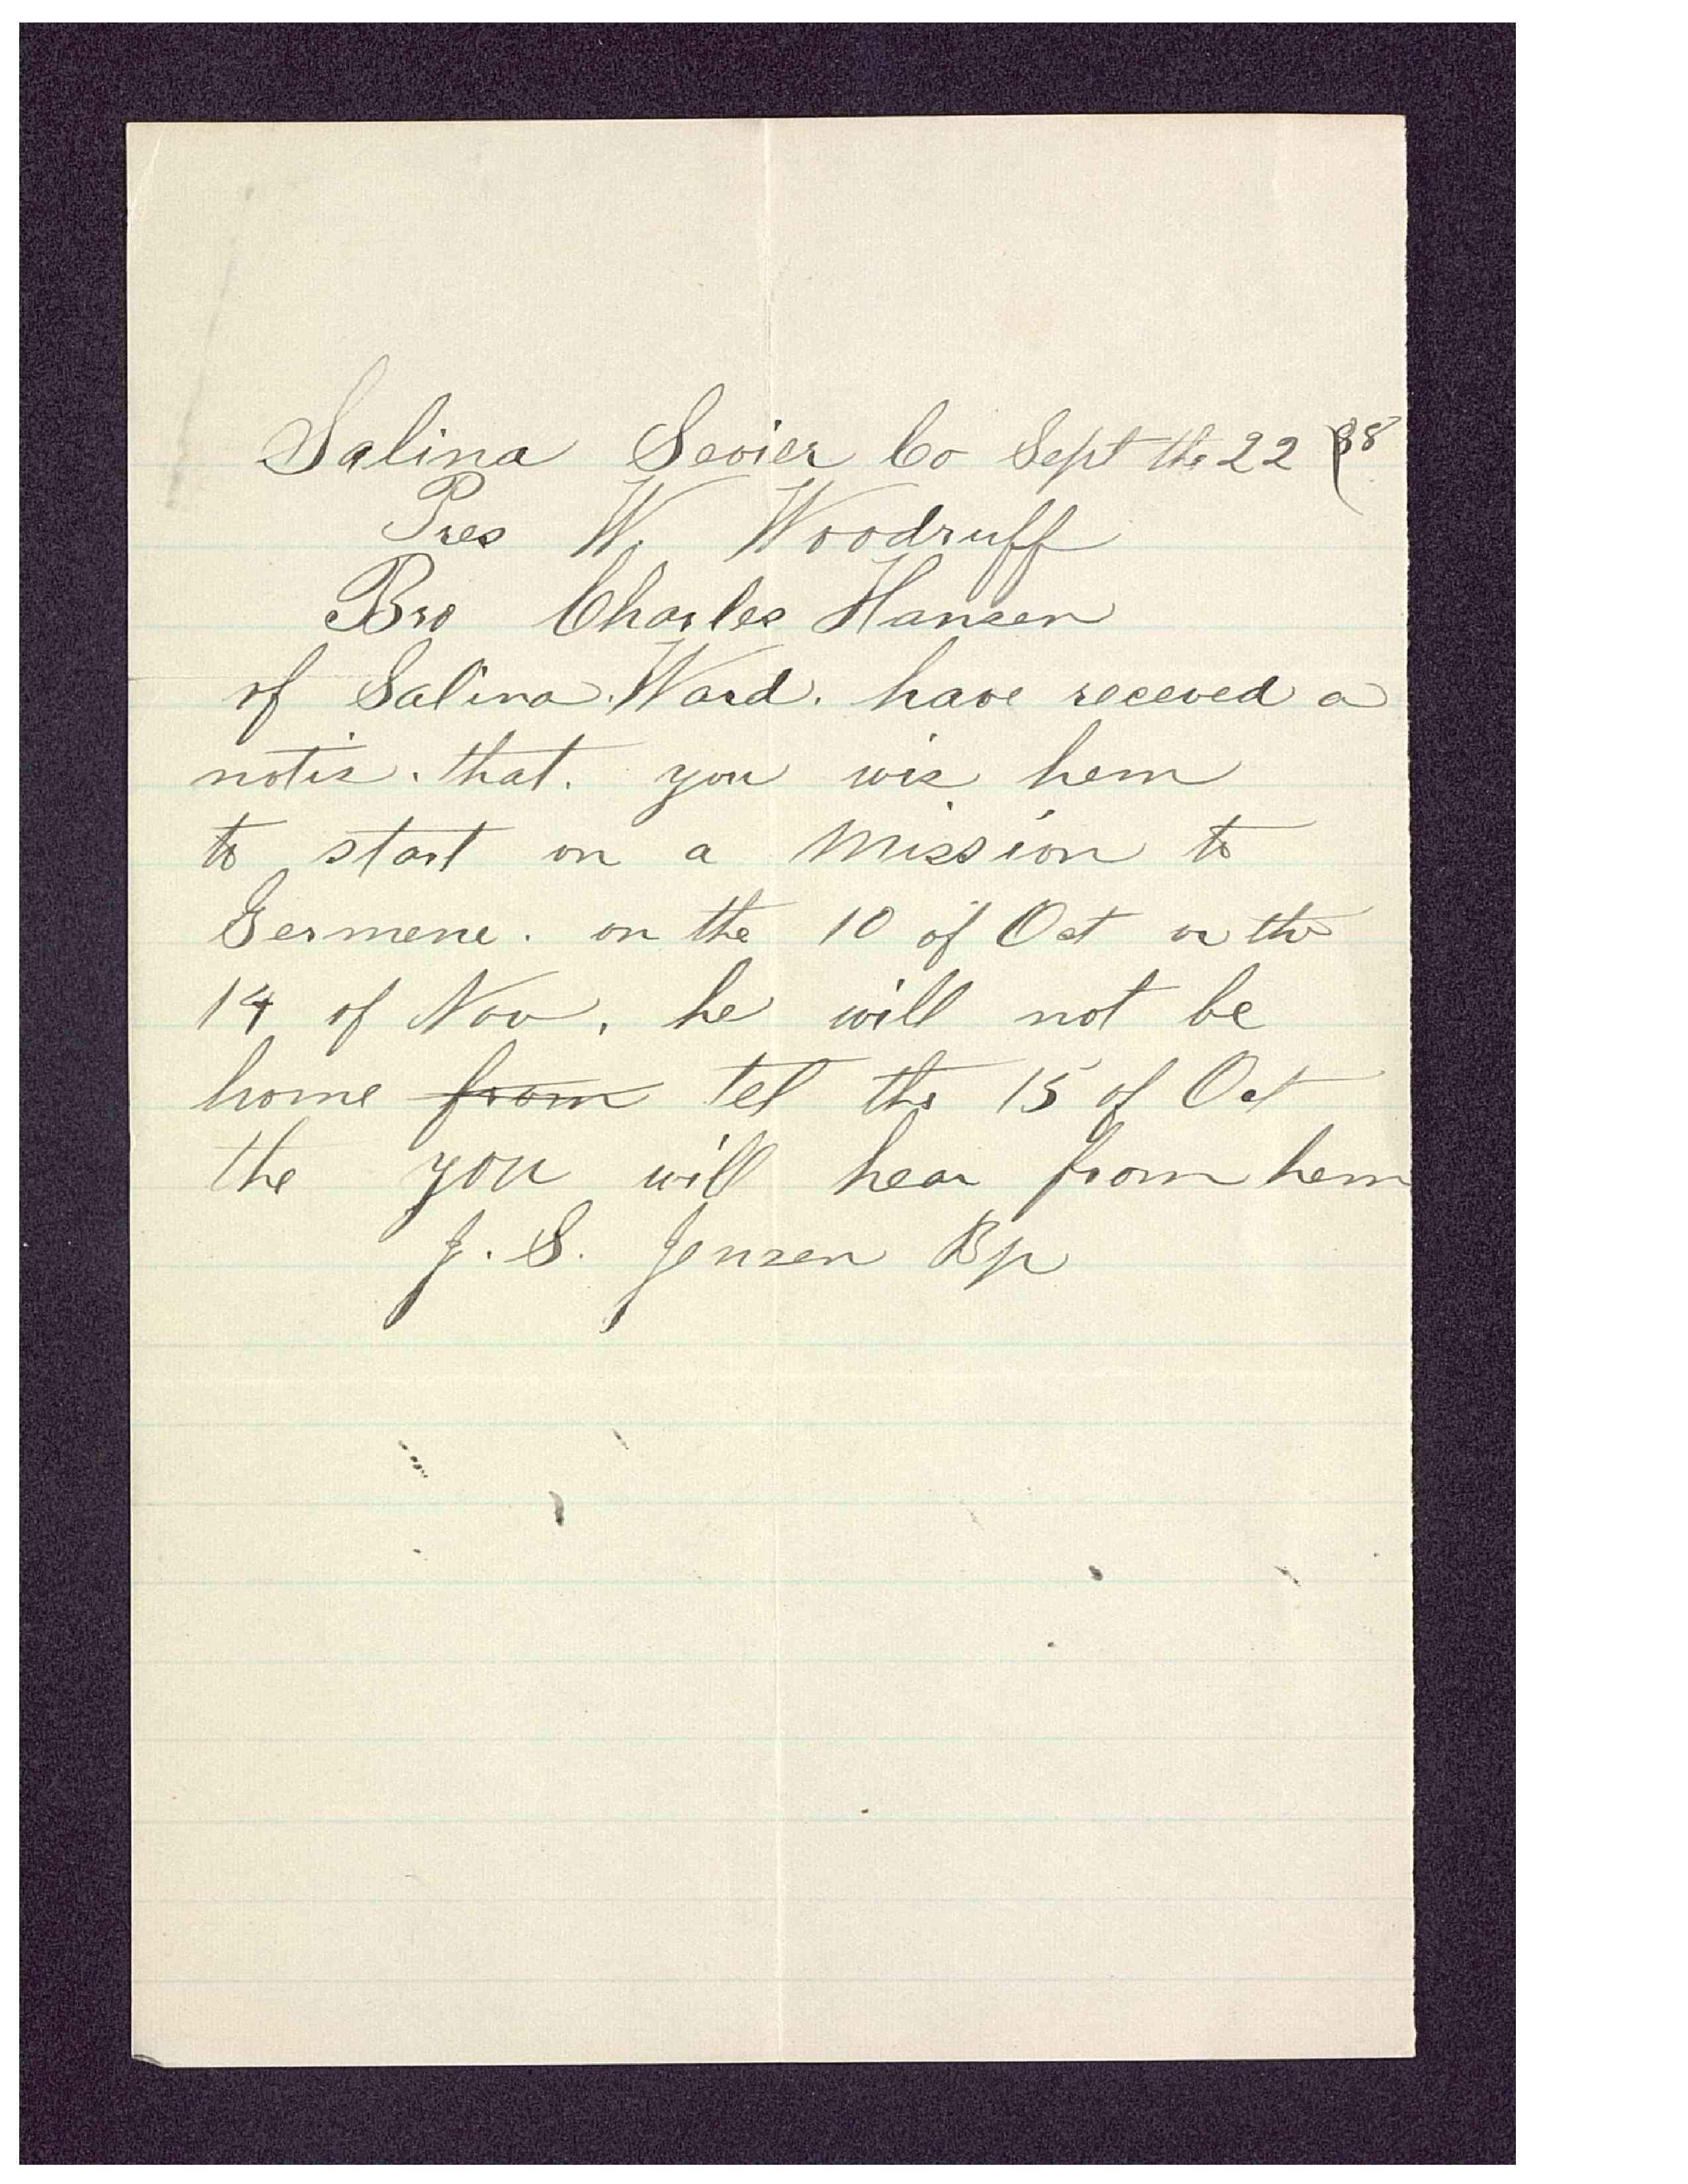 Salina Sevier Co Sept the 22 88
Pres W. Woodruff
Bro Charles Hansen
of Salina. Ward. have receved a
notis. that. you wis hem
to start on a Mission to
Germene. on the 10 of Oct or the
14 of Nov, he will not be
home from tel the 15 of Oct
the you will hear from hem
J. S. Jensen Bp